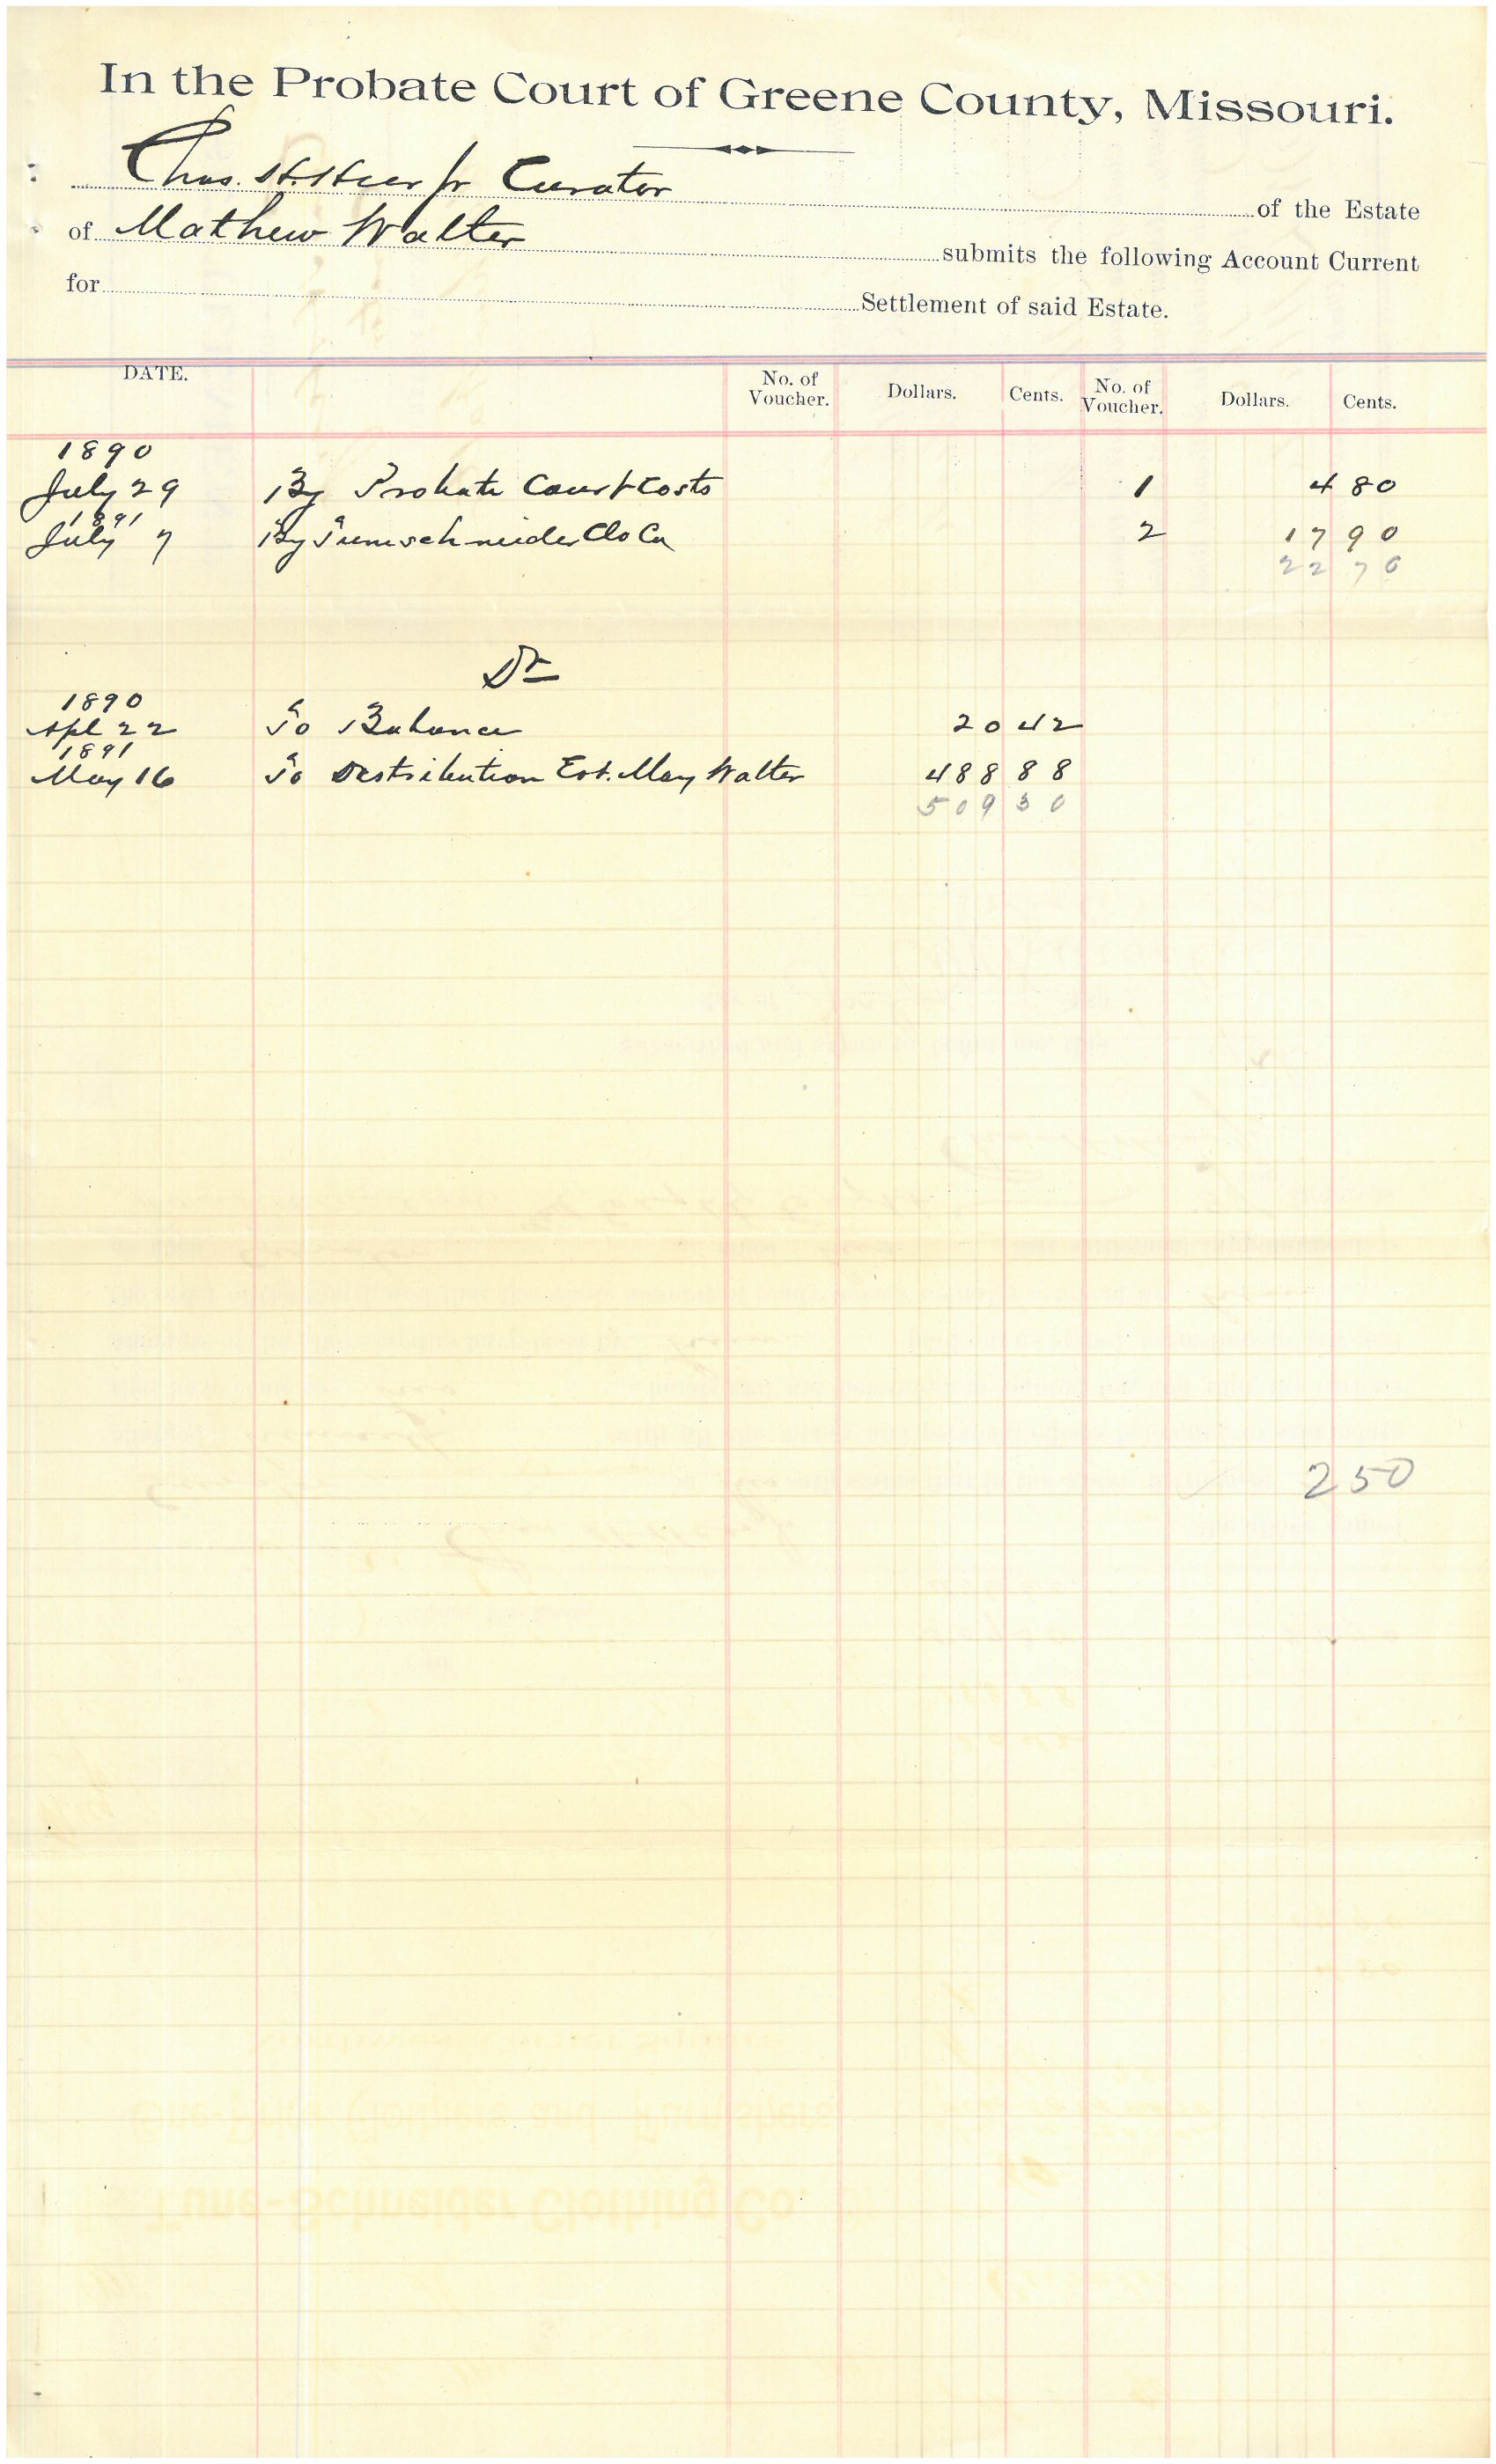 In the Probate Court of Greene County, Missouri.
Chas. H. Heer Jr Curator of the Estate
of Mathew Walter submits the following Account Current
for Settlement of said Estate.
DATE. No. of Voucher. Dollars. Cents. No. of Voucher. Dollars. Cents.
1890
July 29 By Probate Court Costs 1 4 80
1891
July 7 By Tuneschneider Clo Co 2 17 90
22 70
Dr
1890
Apl 22 To Balance 20 42
1891
May 16 To Distribution Est. Mary Walter 488 88
509 30
2 50